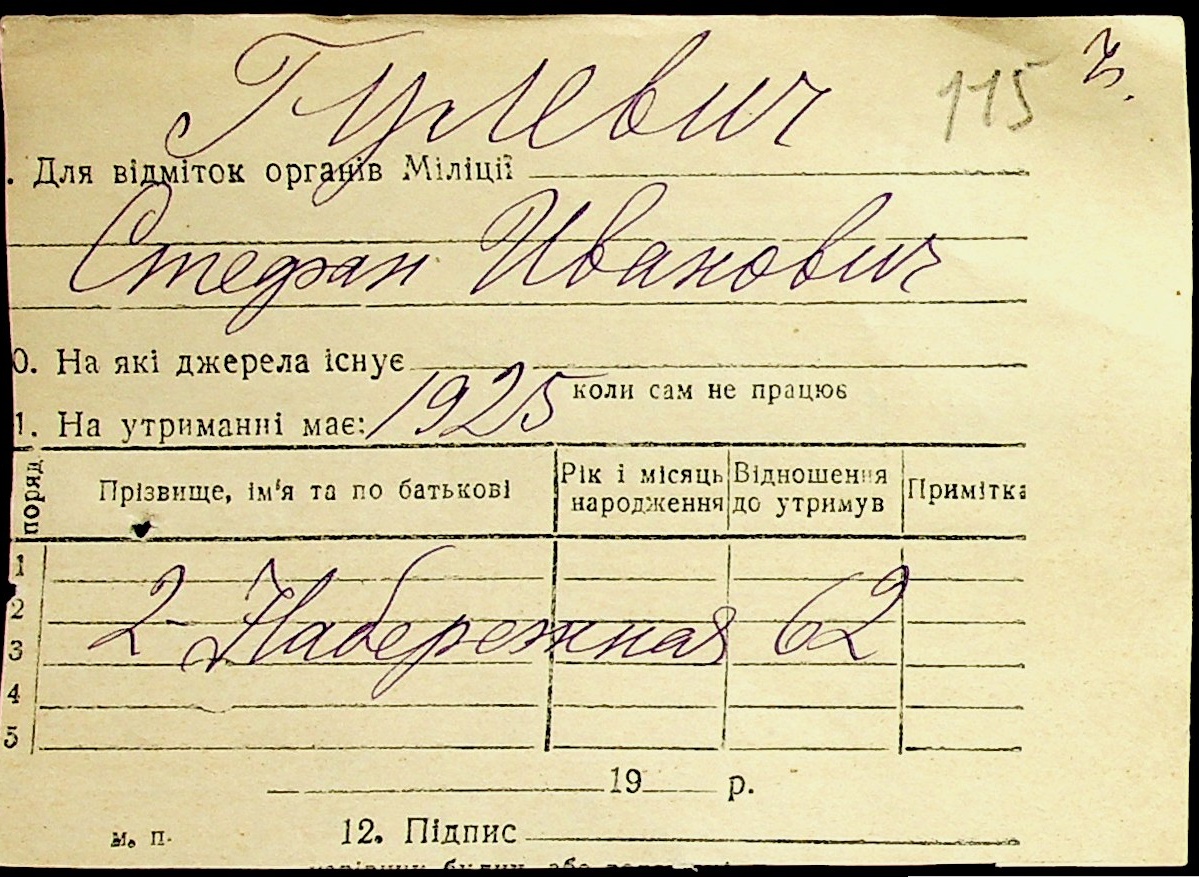 Гулевич 115
. Для відміток органів Міліції
Стефан Иванович
0. На які джерела існує
коли сам не працює
1. На утриманні має: 1925
поряд
Прізвище, ім'я та по батькові
Рік і місяць народження
Відношення до утримув
Примітка
1
2
2 Набережная 62
3
4
5
19 р.
м. п. 12. Підпис